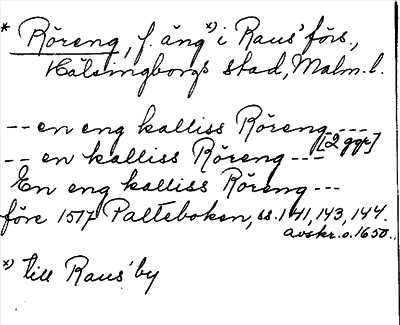 * Röreng, f. äng *) i Raus' förs.,
Hälsingborgs stad, Malm. l.
-- en eng kalliss Röreng ---
[2 ggr]
-- en kalliss Röreng ---
En eng kalliss Röreng ---
före 1517 Palteboken, ss. 141, 143, 144.
avskr. o. 1650.
*) till Raus' by